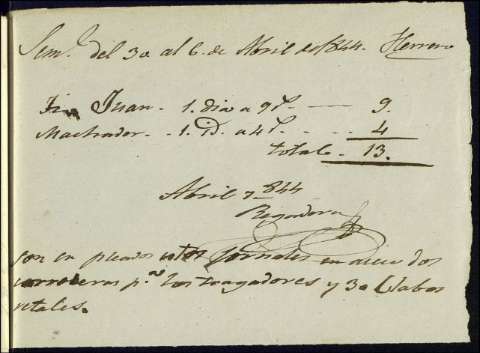 Sem.ª del 30 al 6. de Abril de 1844. Herrero
Juan - 1. dia a 9 r.s - 9.
Machador. - 1. id. a 4 r.s - 4
total - 13.
Abril 7 844
Regadera
son en pleados estos Jornales en dos
carreteras p.ª los tragadores y 30 Clabos
retales.